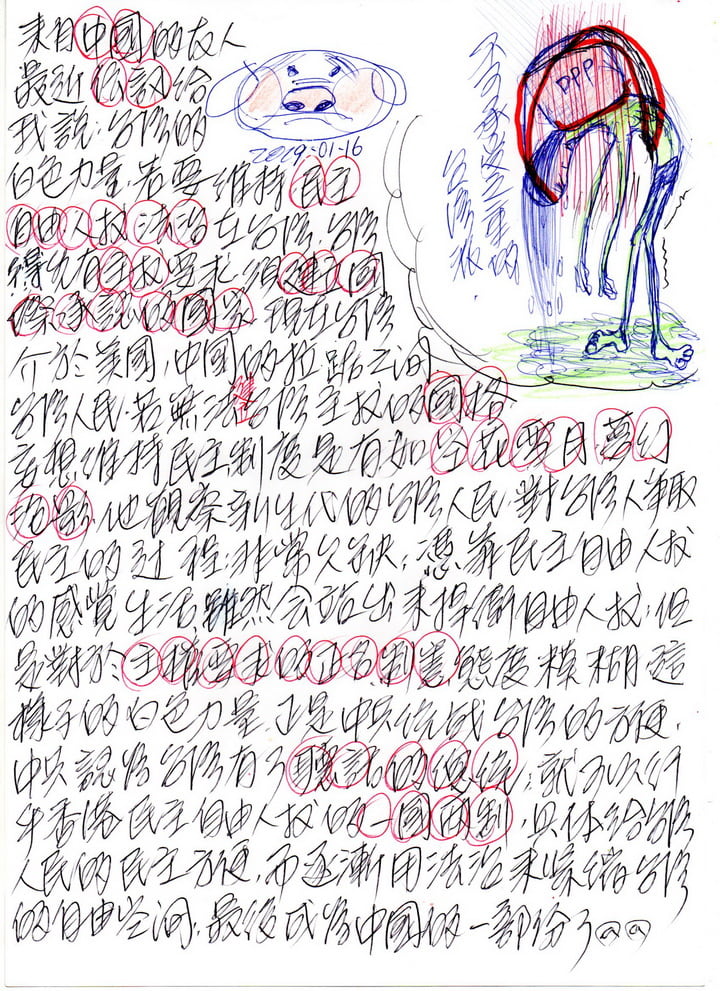 來自中國的友人
最近傳訊給
我說:台灣的
白色力量,若要維持民主
自由人权法治在台灣,台灣
得先有主权要求,
際承認的國家,現在台灣
介於美國,中國的拉踞之间
台灣人民,若無法進台灣主权的國格
妄想維持民主制度是有如空花雪月夢幻
泡影,他觀察新生代的台灣人民,對台灣人爭取
民主的过程,非常欠缺,憑靠民主自由人权
的感覺生活,雖然会站出來捍衛自由人权,但
是對於主權要求的正名制憲態度模糊,這
樣子的白色力量,正是中共統战台灣的方便,
中共認為台灣有了聽話的總統,就可以仿
香港民主自由人权的一國兩制,具体給台灣
人民的民主方便,而逐漸用法治來縮台灣
的自由空间,最後成為中國的一部份了
2019-01-16
DPP
不可承受之重的
台灣